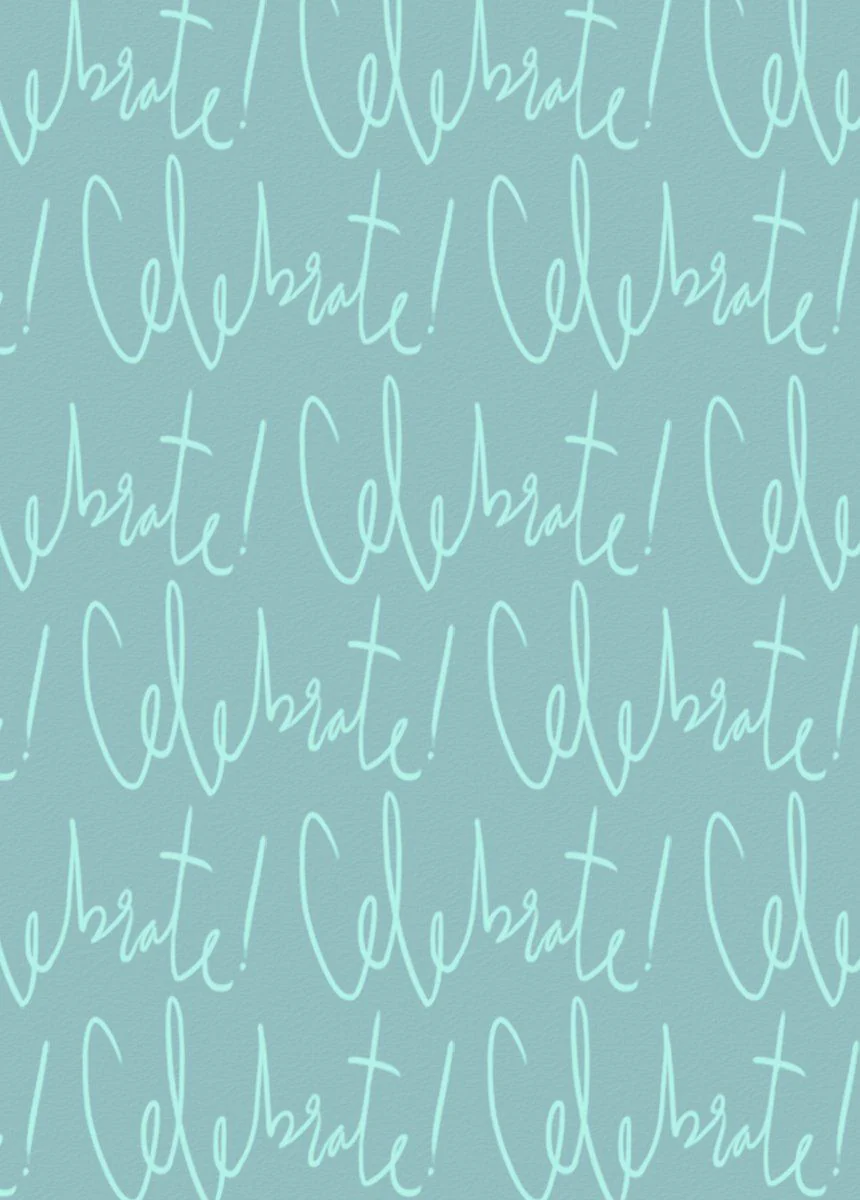 ebrate! Celebrate! Cele
e! Celebrate! Celebrate!
ebrate! Celebrate! Cele
e! Celebrate! Celebrate!
ebrate! Celebrate! Cele
e! Celebrate! Celebrate!